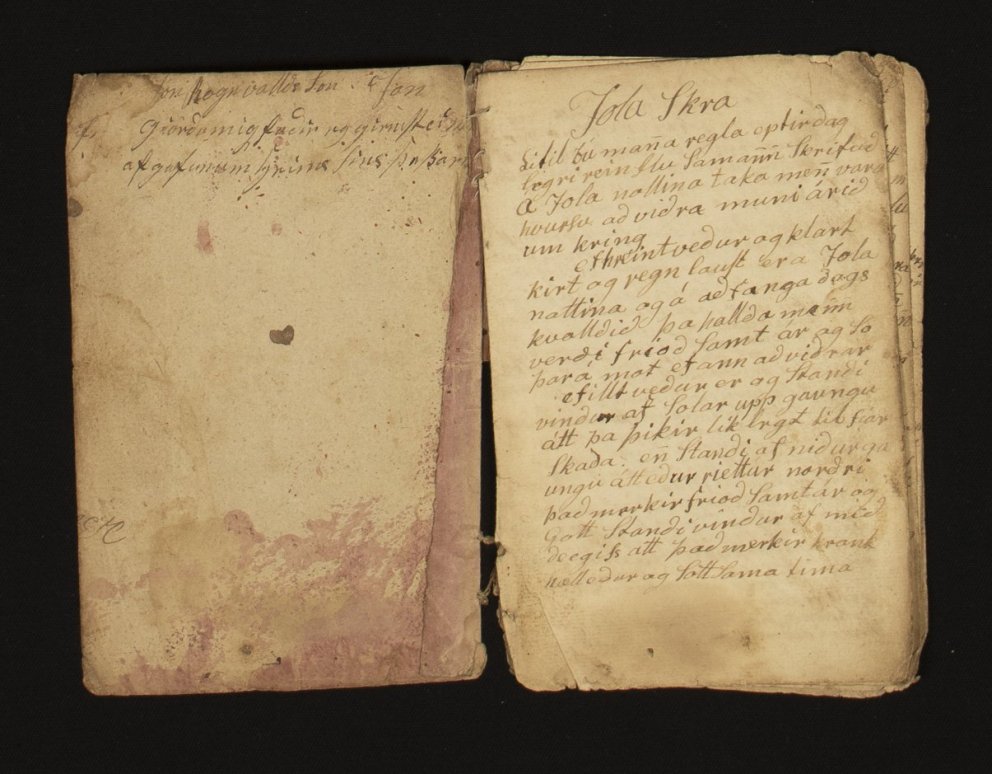 Jon Rognvalldsson Jon
Giordu mig fader og girnast ei
af gefnum Greins Sins
Jola Skra
Litil bu manna regla eptir dag
legri rein slu Samann Skrifud
A Jola nattina taka menn vara
hvursu ad vidra muni árid
um kring
ef hreint vedur og klart
kirt og regn laust er a Jola
nattina og á ad fanga dags
kvalldid þa hallda menn
verdi friod Samt ar og So
þara mot ef ann ad vidrar
ef illt vedur er og Standi
vindur af Solar upp gaungu
átt þa þikir lik legt til fiar
Skada. enn Standi af nidur ga
ungu átt edur riettur nordri
það merkir friod Samt ár og
gott Standi vindur af mid
degiss att það merkir krank
nelledur og Sott Sama tima